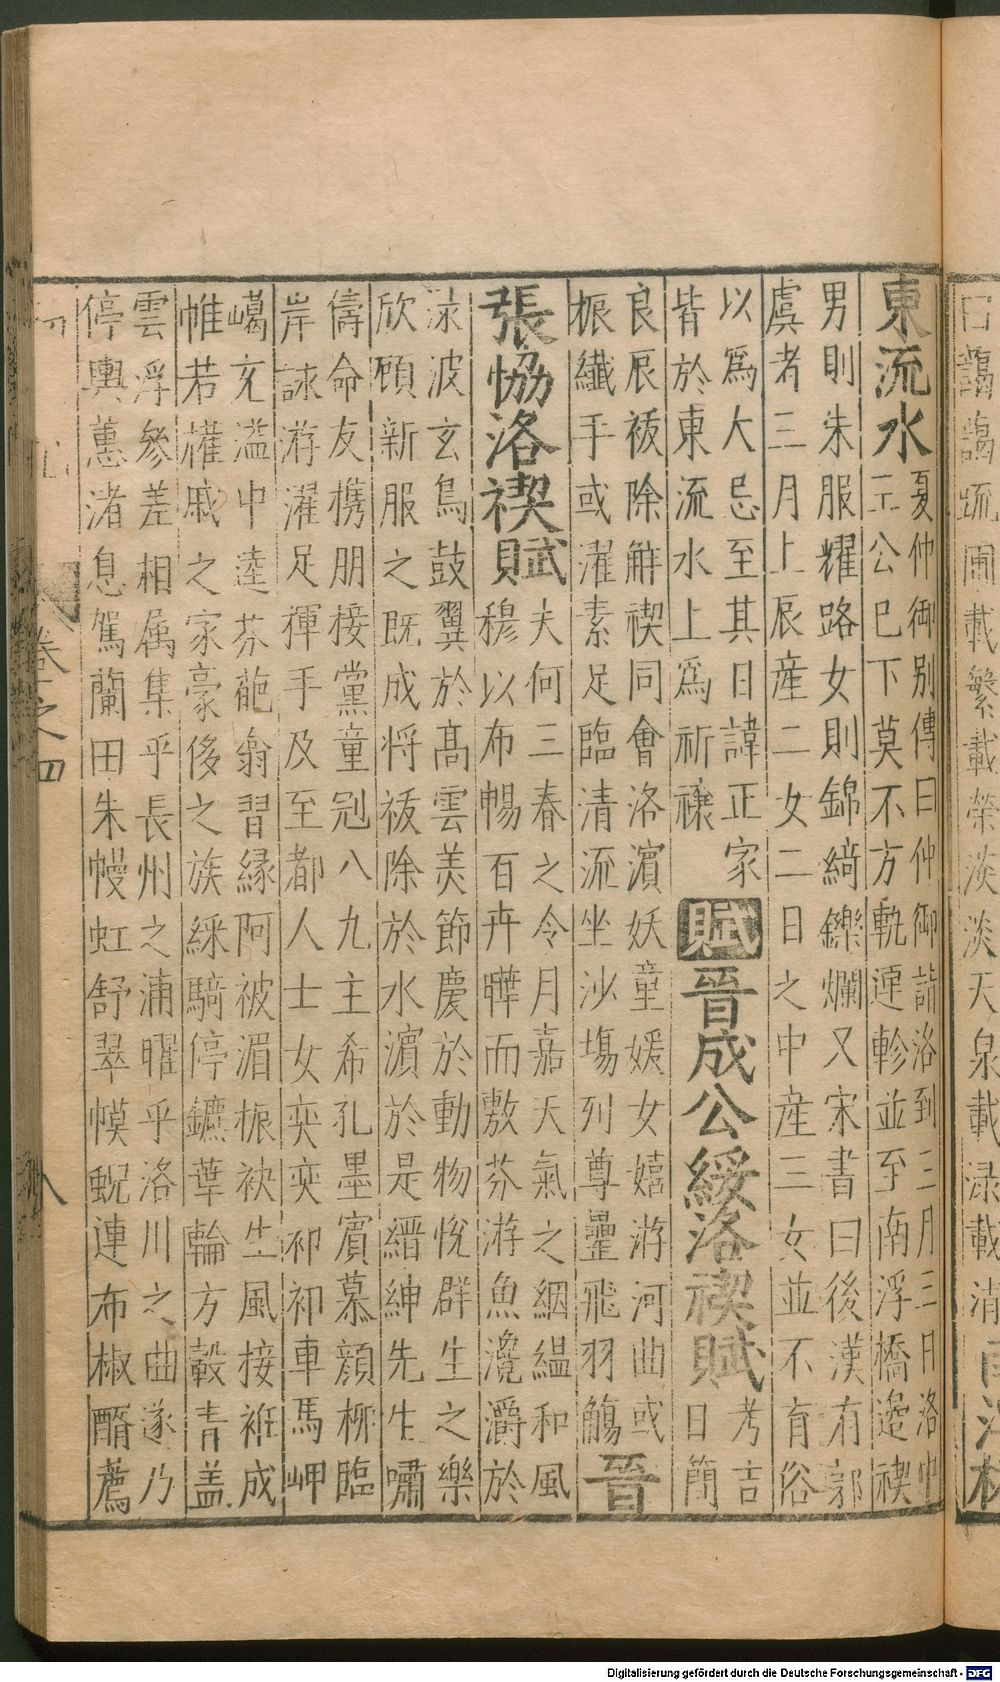 圃載繁載榮淡淡天泉載渌載清
東流水
夏仲御別傳曰仲御詣洛到三月三日洛中
王公巳下莫不方軌連軫並至南浮橋邊禊
男則朱服耀路女則錦綺鑠爛又宋書曰後漢有郭
虞者三月上辰産二女二日之中産三女並不育俗
以爲大忌至其日諱正家
皆於東流水上爲祈禳
賦晉成公綏洛禊賦
考吉
日簡
良辰祓除解禊同會洛濱妖童媛女嬉游河曲或
振纖手或濯素足臨清流坐沙塲列尊罍飛羽觴
晉
張協洛禊賦
夫何三春之令月嘉天氣之絪緼和風
穆以布暢百卉曄而敷芬游魚瀺灂於
渌波玄鳥鼓翼於髙雲美節慶於動物悅群生之樂
欣顧新服之既成将祓除於水濱於是縉紳先生嘯
儔命友携朋接黨童冠八九主希孔墨賓慕顔柳臨
岸詠游濯足揮手及至都人士女奕奕祁祁車馬岬
嶱充溢中逵芬葩翕習縁阿被湄振袂生風接袵成
帷若權戚之家豪侈之族綵騎停鑣華輪方轂青盖
雲浮參差相属集乎長州之浦曜乎洛川之曲遂乃
停輿蕙渚息駕蘭田朱幔虹舒翠幙蜺連布椒醑薦
卷之四
八
Digitalisierung gefördert durch die Deutsche Forschungsgemeinschaft - DFG